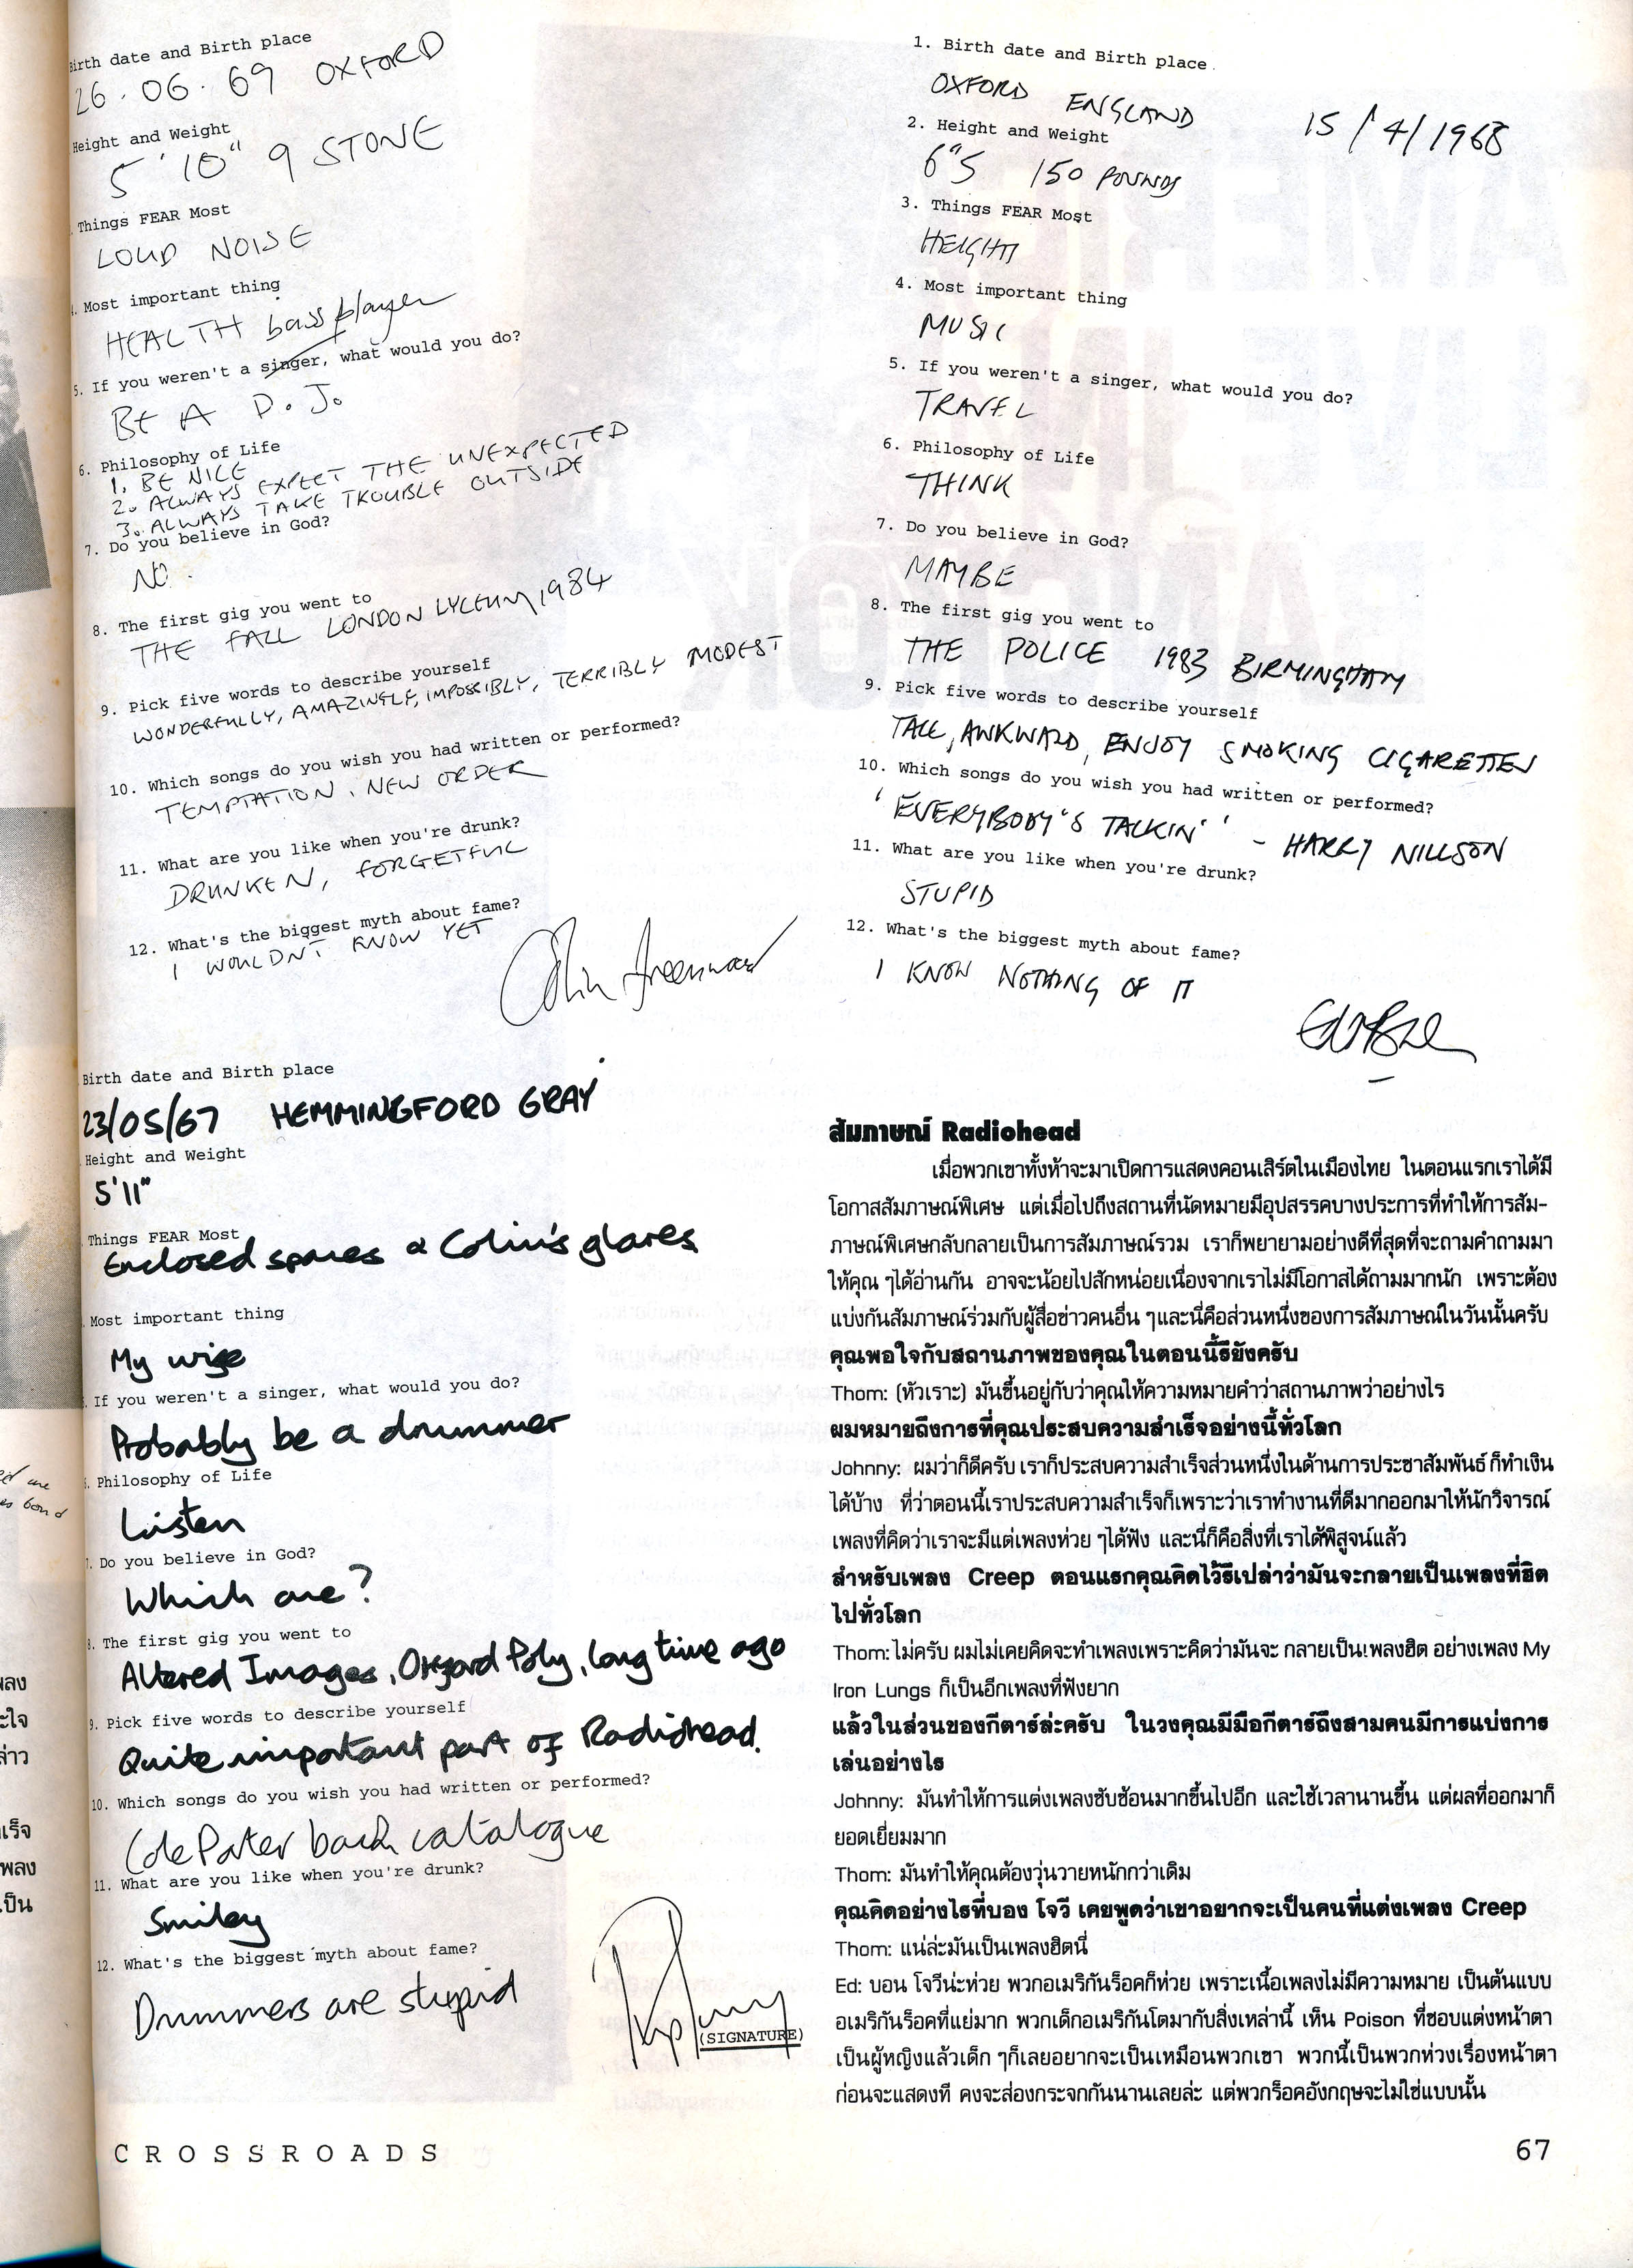 Birth date and Birth place
26.06.69 OXFORD
Height and Weight
5'10" 9 STONE
Things FEAR Most
LOUD NOISE
Most important thing
HEALTH
bass player
5. If you weren't a singer, what would you do?
BE A D.J.
6. Philosophy of Life
1. BE NICE
2. ALWAYS EXPECT THE UNEXPECTED
3. ALWAYS TAKE TROUBLE OUTSIDE
7. Do you believe in God?
NO.
8. The first gig you went to
THE FALL LONDON LYCEUM 1984
9. Pick five words to describe yourself
WONDERFULLY, AMAZINGLY, IMPOSSIBLY, TERRIBLY MODEST
10. Which songs do you wish you had written or performed?
TEMPTATION, NEW ORDER
11. What are you like when you're drunk?
DRUNKEN, FORGETFUL
12. What's the biggest myth about fame?
I WOULDN'T KNOW YET
Colin Greenwood
1. Birth date and Birth place
OXFORD ENGLAND 15/4/1968
2. Height and Weight
6"5 150 POUNDS
3. Things FEAR Most
HEIGHT
4. Most important thing
MUSIC
5. If you weren't a singer, what would you do?
TRAVEL
6. Philosophy of Life
THINK
7. Do you believe in God?
MAYBE
8. The first gig you went to
THE POLICE 1983 BIRMINGHAM
9. Pick five words to describe yourself
TALL, AWKWARD, ENJOY SMOKING CIGARETTES
10. Which songs do you wish you had written or performed?
'EVERYBODY'S TALKIN'' - HARRY NILLSON
11. What are you like when you're drunk?
STUPID
12. What's the biggest myth about fame?
I KNOW NOTHING OF IT
Birth date and Birth place
23/05/67 HEMMINGFORD GRAY
Height and Weight
5'11"
Things FEAR Most
Enclosed spaces & Colin's glares
Most important thing
My wife
If you weren't a singer, what would you do?
Probably be a drummer
Philosophy of Life
Listen
Do you believe in God?
Which one?
The first gig you went to
Altered Images, Oxford Poly, long time ago
9. Pick five words to describe yourself
Quite important part of Radiohead.
10. Which songs do you wish you had written or performed?
Cole Porter back catalogue
11. What are you like when you're drunk?
Smiley
12. What's the biggest myth about fame?
Drummers are stupid
(SIGNATURE)
สัมภาษณ์ Radiohead
เมื่อพวกเขาทั้งห้าจะมาเปิดการแสดงคอนเสิร์ตในเมืองไทย ในตอนแรกเราได้มี
โอกาสสัมภาษณ์พิเศษ แต่เมื่อไปถึงสถานที่นัดหมายมีอุปสรรคบางประการที่ทำให้การสัม-
ภาษณ์พิเศษกลับกลายเป็นการสัมภาษณ์รวม เราก็พยายามอย่างดีที่สุดที่จะถามคำถามมา
ให้คุณ ๆได้อ่านกัน อาจจะน้อยไปสักหน่อยเนื่องจากเราไม่มีโอกาสได้ถามมากนัก เพราะต้อง
แบ่งกันสัมภาษณ์ร่วมกับผู้สื่อข่าวคนอื่น ๆและนี่คือส่วนหนึ่งของการสัมภาษณ์ในวันนั้นครับ
คุณพอใจกับสถานภาพของคุณในตอนนี้รึยังครับ
Thom: (หัวเราะ) มันขึ้นอยู่กับว่าคุณให้ความหมายคำว่าสถานภาพว่าอย่างไร
ผมหมายถึงการที่คุณประสบความสำเร็จอย่างนี้ทั่วโลก
Johnny: ผมว่าก็ดีครับ เราก็ประสบความสำเร็จส่วนหนึ่งในด้านการประชาสัมพันธ์ ก็ทำเงิน
ได้บ้าง ที่ว่าตอนนี้เราประสบความสำเร็จก็เพราะว่าเราทำงานที่ดีมากออกมาให้นักวิจารณ์
เพลงที่คิดว่าเราจะมีแต่เพลงห่วย ๆได้ฟัง และนี่ก็คือสิ่งที่เราได้พิสูจน์แล้ว
สำหรับเพลง Creep ตอนแรกคุณคิดไว้รึเปล่าว่ามันจะกลายเป็นเพลงที่ฮิต
ไปทั่วโลก
Thom: ไม่ครับ ผมไม่เคยคิดจะทำเพลงเพราะคิดว่ามันจะ กลายเป็นเพลงฮิต อย่างเพลง My
Iron Lungs ก็เป็นอีกเพลงที่ฟังยาก
แล้วในส่วนของกีตาร์ล่ะครับ ในวงคุณมีมือกีตาร์ถึงสามคนมีการแบ่งการ
เล่นอย่างไร
Johnny: มันทำให้การแต่งเพลงซับซ้อนมากขึ้นไปอีก และใช้เวลานานขึ้น แต่ผลที่ออกมาก็
ยอดเยี่ยมมาก
Thom: มันทำให้คุณต้องวุ่นวายหนักกว่าเดิม
คุณคิดอย่างไรที่บอง โจวี เคยพูดว่าเขาอยากจะเป็นคนที่แต่งเพลง Creep
Thom: แน่ล่ะมันเป็นเพลงฮิตนี่
Ed: บอน โจวีน่ะห่วย พวกอเมริกันร็อคก็ห่วย เพราะเนื้อเพลงไม่มีความหมาย เป็นต้นแบบ
อเมริกันร็อคที่แย่มาก พวกเด็กอเมริกันโตมากับสิ่งเหล่านี้ เห็น Poison ที่ชอบแต่งหน้าตา
เป็นผู้หญิงแล้วเด็ก ๆก็เลยอยากจะเป็นเหมือนพวกเขา พวกนี้เป็นพวกห่วงเรื่องหน้าตา
ก่อนจะแสดงที คงจะส่องกระจกกันนานเลยล่ะ แต่พวกร็อคอังกฤษจะไม่ใช่แบบนั้น
CROSSROADS
67